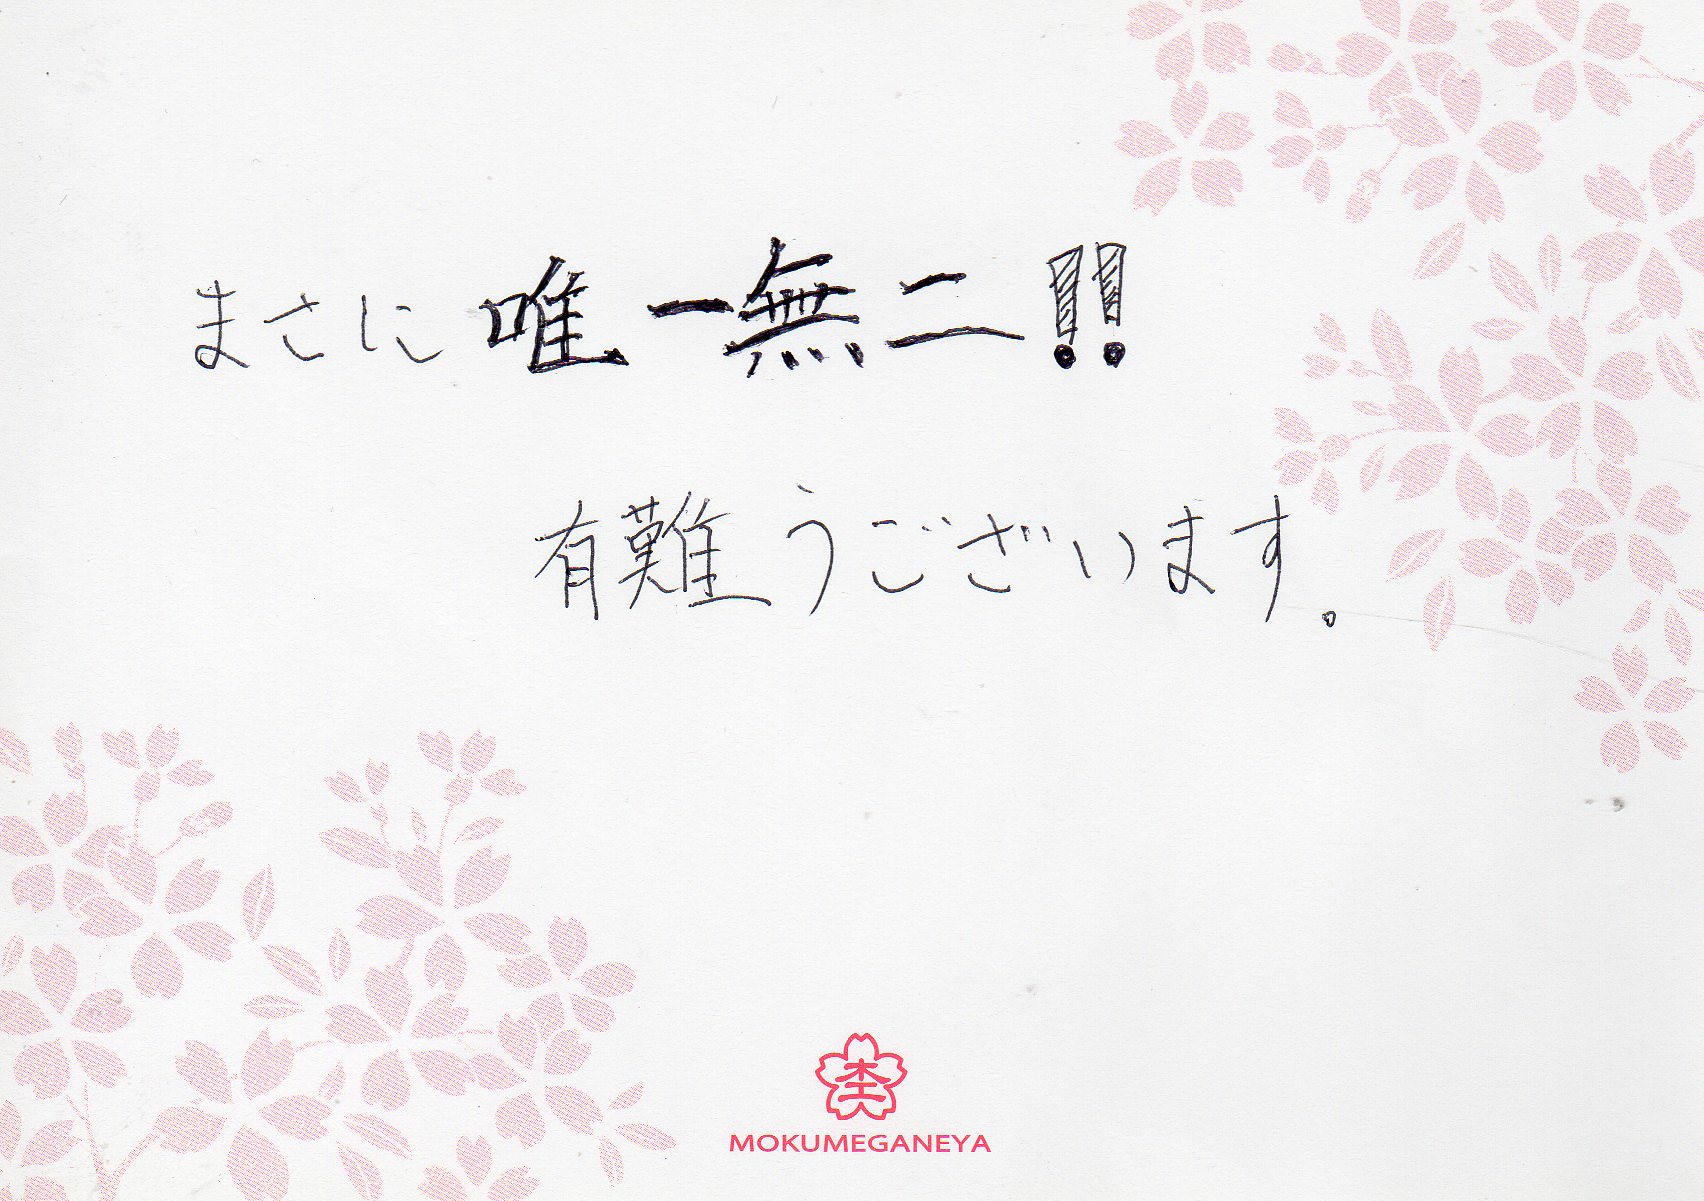 まさに唯一無二!!
有難うございます。
MOKUMEGANEYA